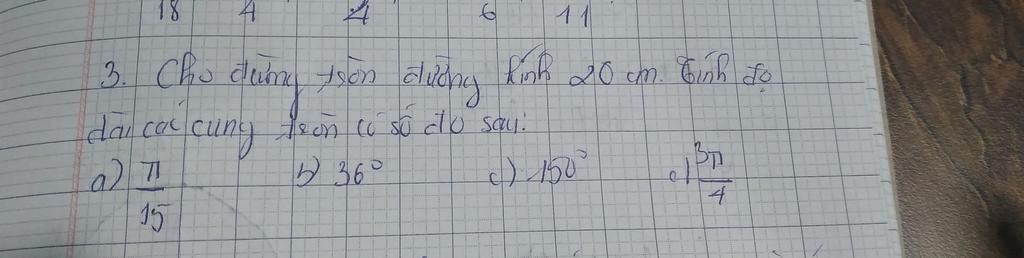 18 4 4 6 11
3. Cho đường tròn đường kính 20 cm. Tính độ
dài các cung tròn có số đo sau:
a) π/15 b) 36° c) -150° d) 3π/4